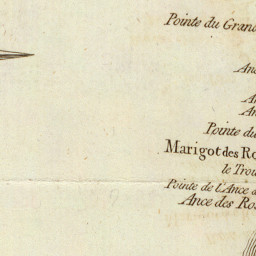 Pointe du Grand
Pointe du
Marigot des Ro
le Trou
Pointe de L'Ance d
Ance des Ro